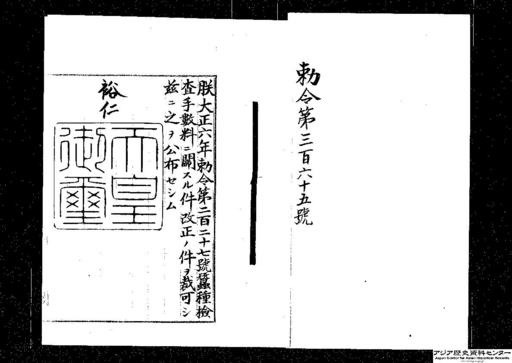 勅令第三百六十五號
朕大正六年勅令第二百二十七號蠶種檢
查手數料ニ關スル件改正ノ件ヲ裁可シ
茲ニ之ヲ公布セシム
裕仁
天皇
御璽
アジア歴史資料センター
Japan Center for Asian Historical Records